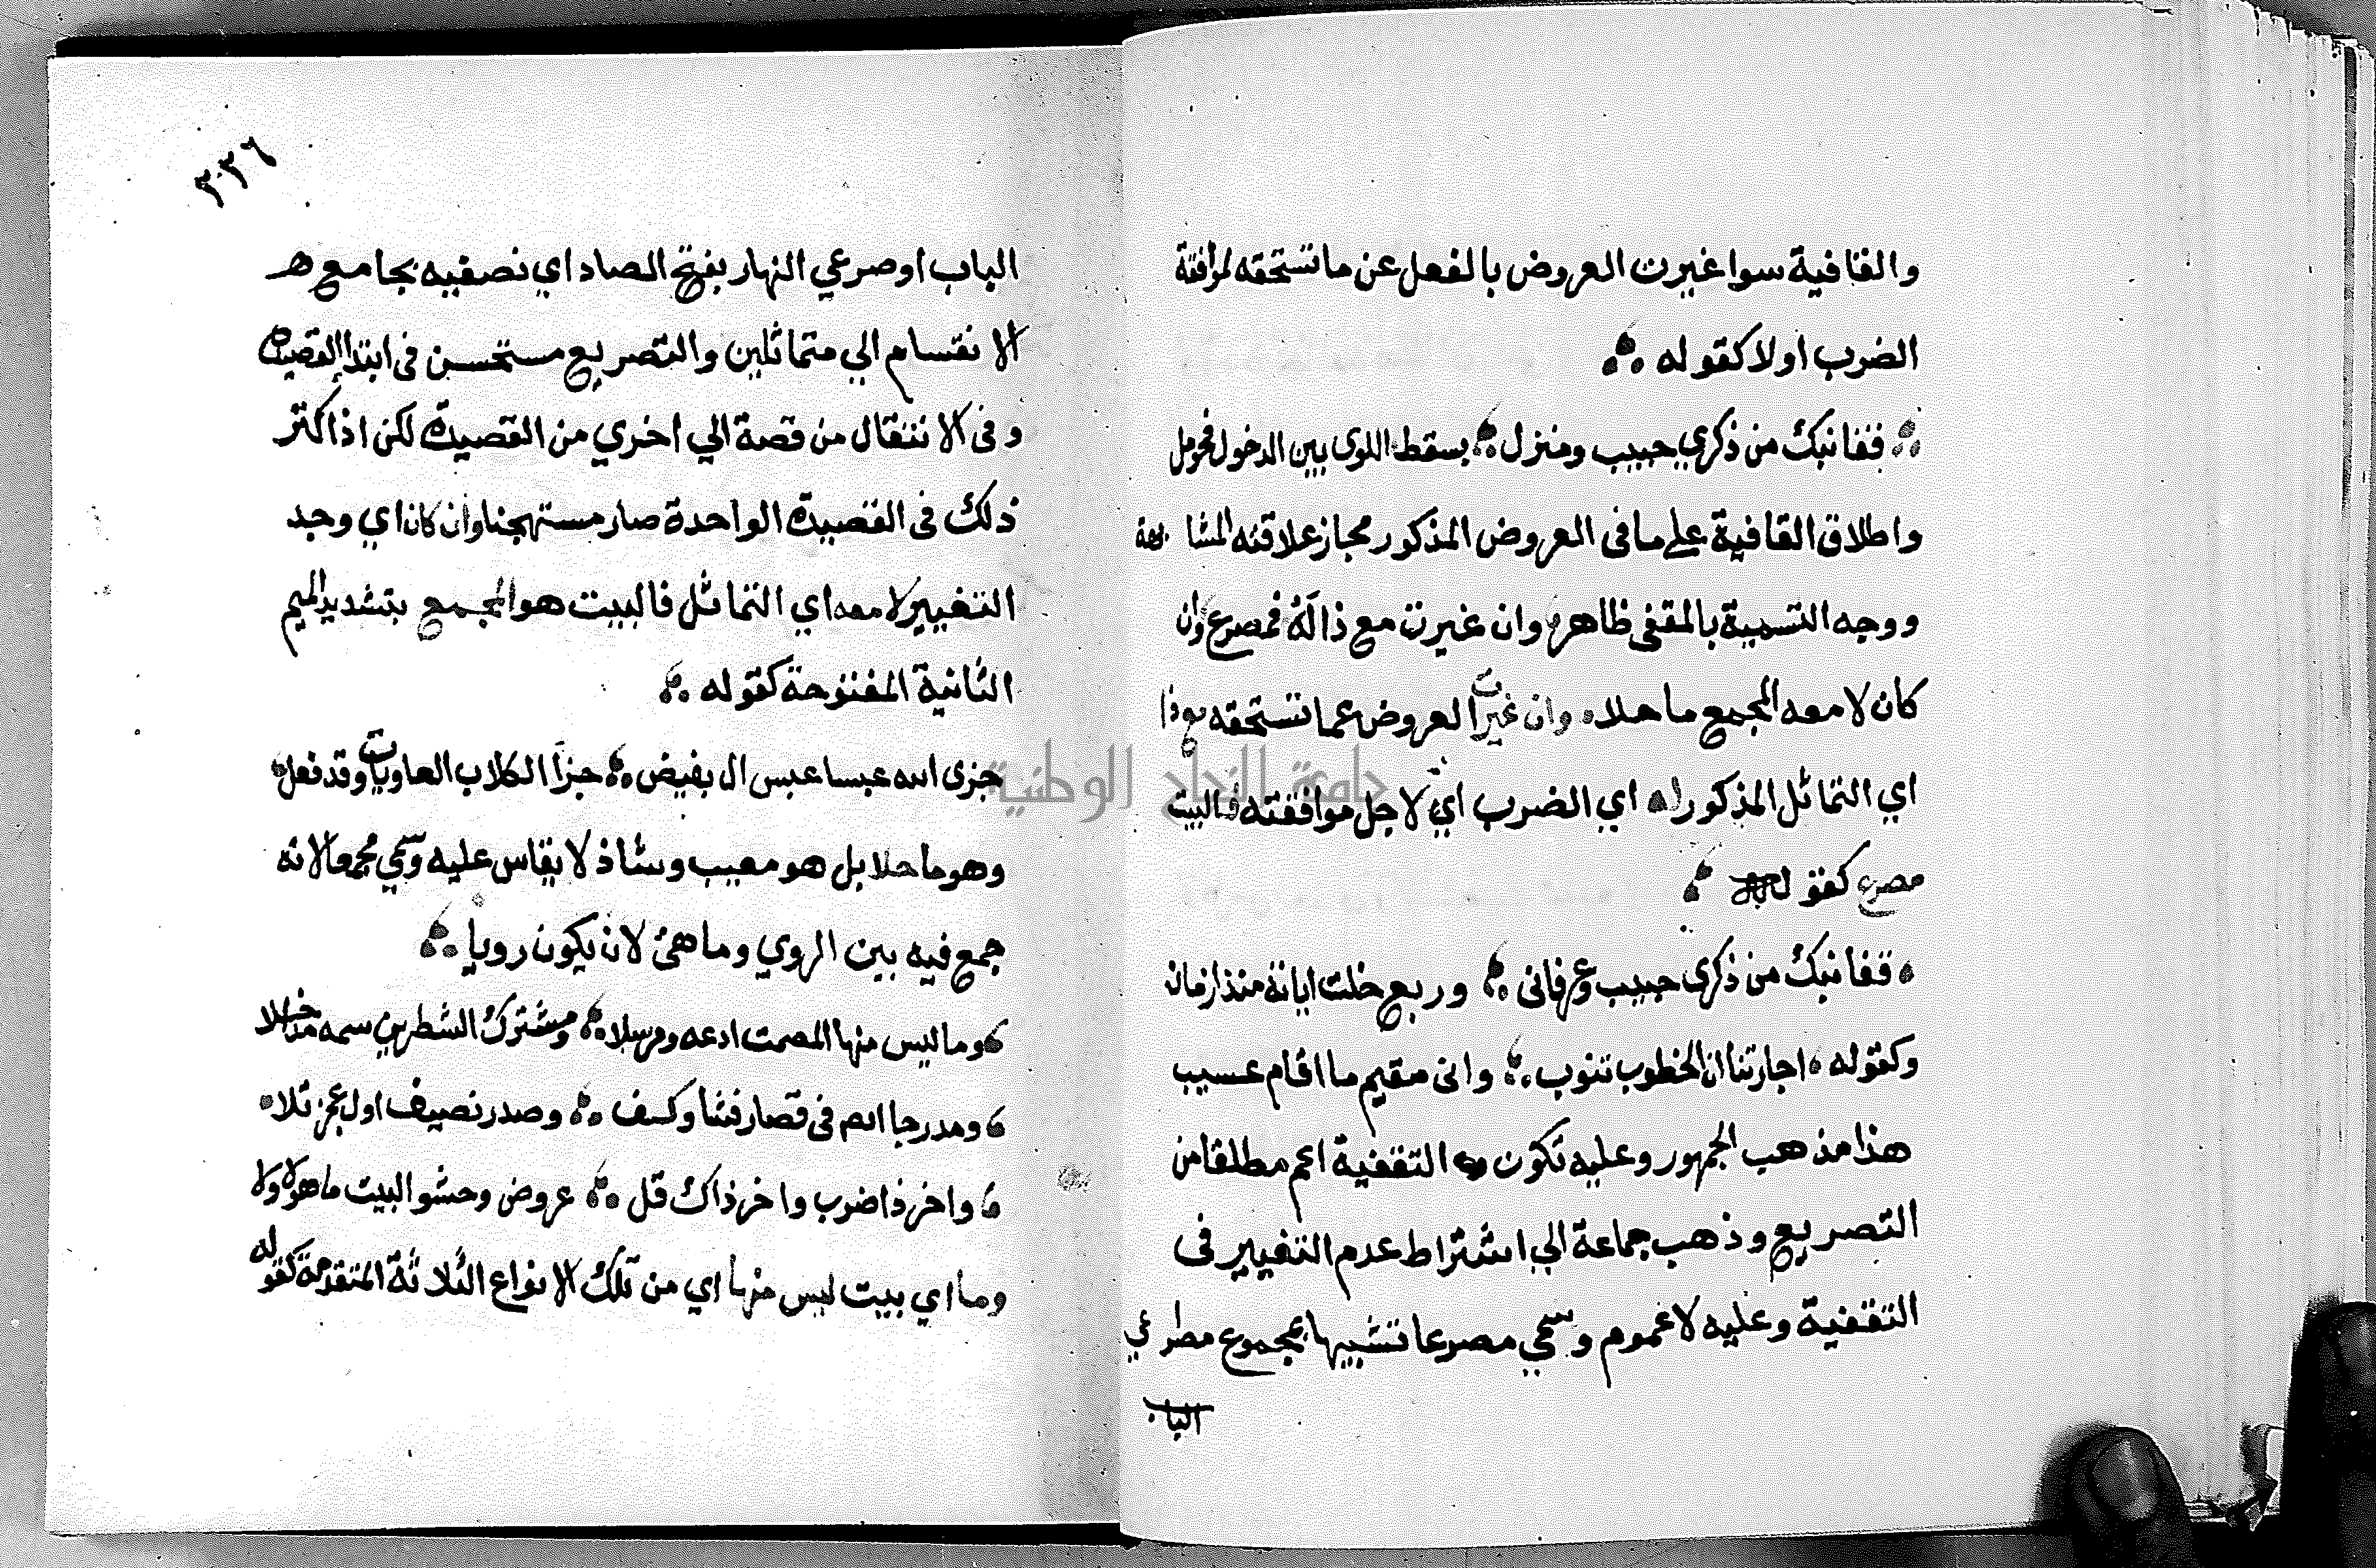 والقافية سوا غيرت العروض بالفعل عن ما تستحقه لموافقة
الضرب اولا كقوله
قفا نبك من ذكري حبيب ومنزل بسقط اللوى بين الدخول فحومل
واطلاق القافية على ما في العروض المذكور مجاز علاقته المشابهة
ووجه التسمية بالمقفى ظاهر وان غيرت مع ذا له فمصرع وان
كان لا معه المجمع ما حلا وان غيرت العروض عما تستحقه مع ذا
اي التماثل المذكور له اي الضرب اي لاجل موافقته فالبيت
مصرع كقوله
قفا نبك من ذكرى حبيب وعرفاني وربع خلت اياته منذ ازمان
وكقوله اجارتنا ان الخطوب تنوب واني مقيم ما اقام عسيب
هذا مذهب الجمهور وعليه تكون التقفية اعم مطلقا من
التصريع وذهب جماعة الي اشتراط عدم التغيير في
التقفية وعليه لا عموم وسمي مصرعا تشبيها بمجموع مطرعي
الباب
٣٣٦
الباب او صرعي النهار بفتح الصاد اي نصفيه بجامع
الانقسام الي متماثلين والتصريع مستحسن في ابتدا القصيدة
وفي الانتقال من قصة الي اخري من القصيدة لكن اذا كثر
ذلك في القصيدة الواحدة صار مستهجنا وان كان اي وجد
التغيير لا معه اي التماثل فالبيت هو المجمع بتشديد الميم
الثانية المفتوحة كقوله
جزى الله عبسا عبس ال بغيض جزآ الكلاب العاويات وقد فعل
وهو ما حلا بل هو معيب وشاذ لا يقاس عليه وسمي مجمعا لانه
جمع فيه بين الروي وما هئ لان يكون رويا
وما ليس منها المصمت ادعه ومرسلا ومشترك الشطرين سمه مداخلا
ومدرجا انم في قصار فشا وكسف وصدر نصيف اول عجز تلا
واخر ذا ضرب واخر ذاك قل عروض وحشو البيت ما هو لا ولا
وما اي بيت ليس منها اي من تلك الانواع الثلاثة المتقدمة كقوله
جامعة النجاح الوطنية